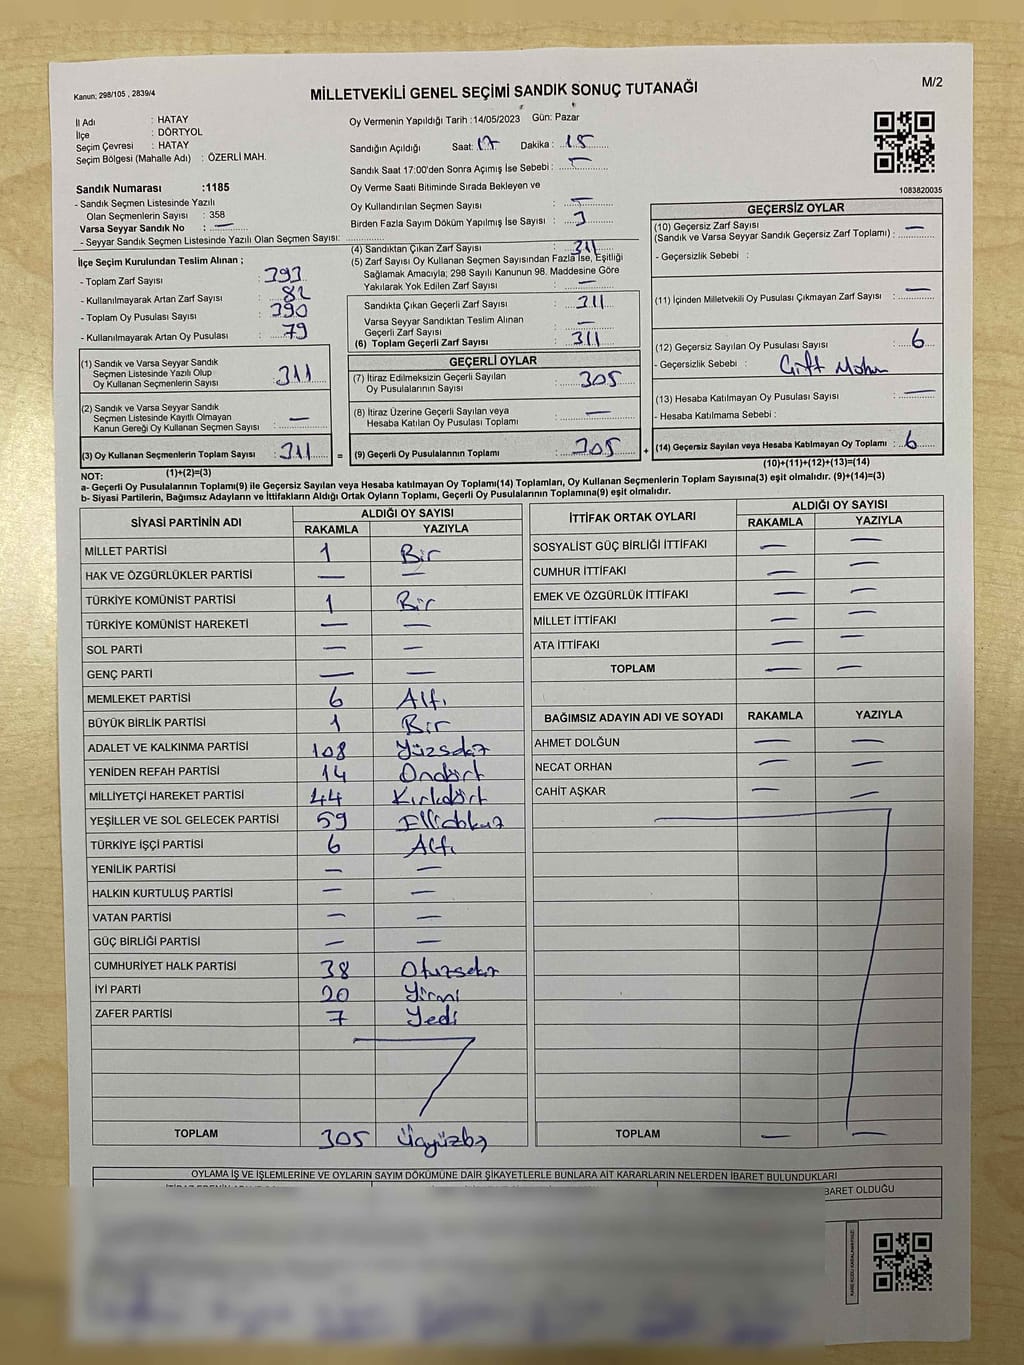 Kanun: 298/105 , 2839/4
MİLLETVEKİLİ GENEL SEÇİMİ SANDIK SONUÇ TUTANAĞI
M/2
İl Adı : HATAY
İlçe : DÖRTYOL
Seçim Çevresi : HATAY
Seçim Bölgesi (Mahalle Adı) : ÖZERLİ MAH.
Sandık Numarası :1185
- Sandık Seçmen Listesinde Yazılı
Olan Seçmenlerin Sayısı : 358
Varsa Seyyar Sandık No : —
- Seyyar Sandık Seçmen Listesinde Yazılı Olan Seçmen Sayısı:
İlçe Seçim Kurulundan Teslim Alınan ;
- Toplam Zarf Sayısı : 393
- Kullanılmayarak Artan Zarf Sayısı : 82
- Toplam Oy Pusulası Sayısı : 390
- Kullanılmayarak Artan Oy Pusulası : 79
(1) Sandık ve Varsa Seyyar Sandık
Seçmen Listesinde Yazılı Olup
Oy Kullanan Seçmenlerin Sayısı : 311
(2) Sandık ve Varsa Seyyar Sandık
Seçmen Listesinde Kayıtlı Olmayan
Kanun Gereği Oy Kullanan Seçmen Sayısı : —
(3) Oy Kullanan Seçmenlerin Toplam Sayısı : 311
(1)+(2)=(3)
Oy Vermenin Yapıldığı Tarih :14/05/2023 Gün: Pazar
Sandığın Açıldığı Saat: 17 Dakika : 15
Sandık Saat 17:00'den Sonra Açımış İse Sebebi : —
Oy Verme Saati Bitiminde Sırada Bekleyen ve
Oy Kullandırılan Seçmen Sayısı : —
Birden Fazla Sayım Döküm Yapılmış İse Sayısı :
(4) Sandıktan Çıkan Zarf Sayısı : 311
(5) Zarf Sayısı Oy Kullanan Seçmen Sayısından Fazla İse, Eşitliği
Sağlamak Amacıyla; 298 Sayılı Kanunun 98. Maddesine Göre
Yakılarak Yok Edilen Zarf Sayısı : —
Sandıkta Çıkan Geçerli Zarf Sayısı : 311
Varsa Seyyar Sandıktan Teslim Alınan
Geçerli Zarf Sayısı : —
(6) Toplam Geçerli Zarf Sayısı : 311
GEÇERLİ OYLAR
(7) İtiraz Edilmeksizin Geçerli Sayılan
Oy Pusulalarının Sayısı : 305
(8) İtiraz Üzerine Geçerli Sayılan veya
Hesaba Katılan Oy Pusulası Toplamı : —
= (9) Geçerli Oy Pusulalarının Toplamı : 305 +
1083820035
GEÇERSİZ OYLAR
(10) Geçersiz Zarf Sayısı
(Sandık ve Varsa Seyyar Sandık Geçersiz Zarf Toplamı) : —
- Geçersizlik Sebebi :
(11) İçinden Milletvekili Oy Pusulası Çıkmayan Zarf Sayısı : —
(12) Geçersiz Sayılan Oy Pusulası Sayısı : 6
- Geçersizlik Sebebi : Çift Mühür
(13) Hesaba Katılmayan Oy Pusulası Sayısı : —
- Hesaba Katılmama Sebebi :
(14) Geçersiz Sayılan veya Hesaba Katılmayan Oy Toplamı : 6
(10)+(11)+(12)+(13)=(14)
NOT:
a- Geçerli Oy Pusulalarının Toplamı(9) ile Geçersiz Sayılan veya Hesaba katılmayan Oy Toplamı(14) Toplamları, Oy Kullanan Seçmenlerin Toplam Sayısına(3) eşit olmalıdır. (9)+(14)=(3)
b- Siyasi Partilerin, Bağımsız Adayların ve İttifakların Aldığı Ortak Oyların Toplamı, Geçerli Oy Pusulalarının Toplamına(9) eşit olmalıdır.
SİYASİ PARTİNİN ADI ALDIĞI OY SAYISI
RAKAMLA YAZIYLA
MİLLET PARTİSİ 1 Bir
HAK VE ÖZGÜRLÜKLER PARTİSİ — —
TÜRKİYE KOMÜNİST PARTİSİ 1 Bir
TÜRKİYE KOMÜNİST HAREKETİ — —
SOL PARTİ — —
GENÇ PARTİ — —
MEMLEKET PARTİSİ 6 Altı
BÜYÜK BİRLİK PARTİSİ 1 Bir
ADALET VE KALKINMA PARTİSİ 108 Yüzsekiz
YENİDEN REFAH PARTİSİ 14 Ondört
MİLLİYETÇİ HAREKET PARTİSİ 44 Kırkdört
YEŞİLLER VE SOL GELECEK PARTİSİ 59 Ellidokuz
TÜRKİYE İŞÇİ PARTİSİ 6 Altı
YENİLİK PARTİSİ — —
HALKIN KURTULUŞ PARTİSİ — —
VATAN PARTİSİ — —
GÜÇ BİRLİĞİ PARTİSİ — —
CUMHURİYET HALK PARTİSİ 38 Otuzsekiz
İYİ PARTİ 20 Yirmi
ZAFER PARTİSİ 7 Yedi
TOPLAM 305 Üçyüzbeş
İTTİFAK ORTAK OYLARI ALDIĞI OY SAYISI
RAKAMLA YAZIYLA
SOSYALİST GÜÇ BİRLİĞİ İTTİFAKI — —
CUMHUR İTTİFAKI — —
EMEK VE ÖZGÜRLÜK İTTİFAKI — —
MİLLET İTTİFAKI — —
ATA İTTİFAKI — —
TOPLAM — —
BAĞIMSIZ ADAYIN ADI VE SOYADI RAKAMLA YAZIYLA
AHMET DOLĞUN — —
NECAT ORHAN — —
CAHİT AŞKAR — —
TOPLAM — —
OYLAMA İŞ VE İŞLEMLERİNE VE OYLARIN SAYIM DÖKÜMÜNE DAİR ŞİKAYETLERLE BUNLARA AİT KARARLARIN NELERDEN İBARET BULUNDUKLARI
BARET OLDUĞU